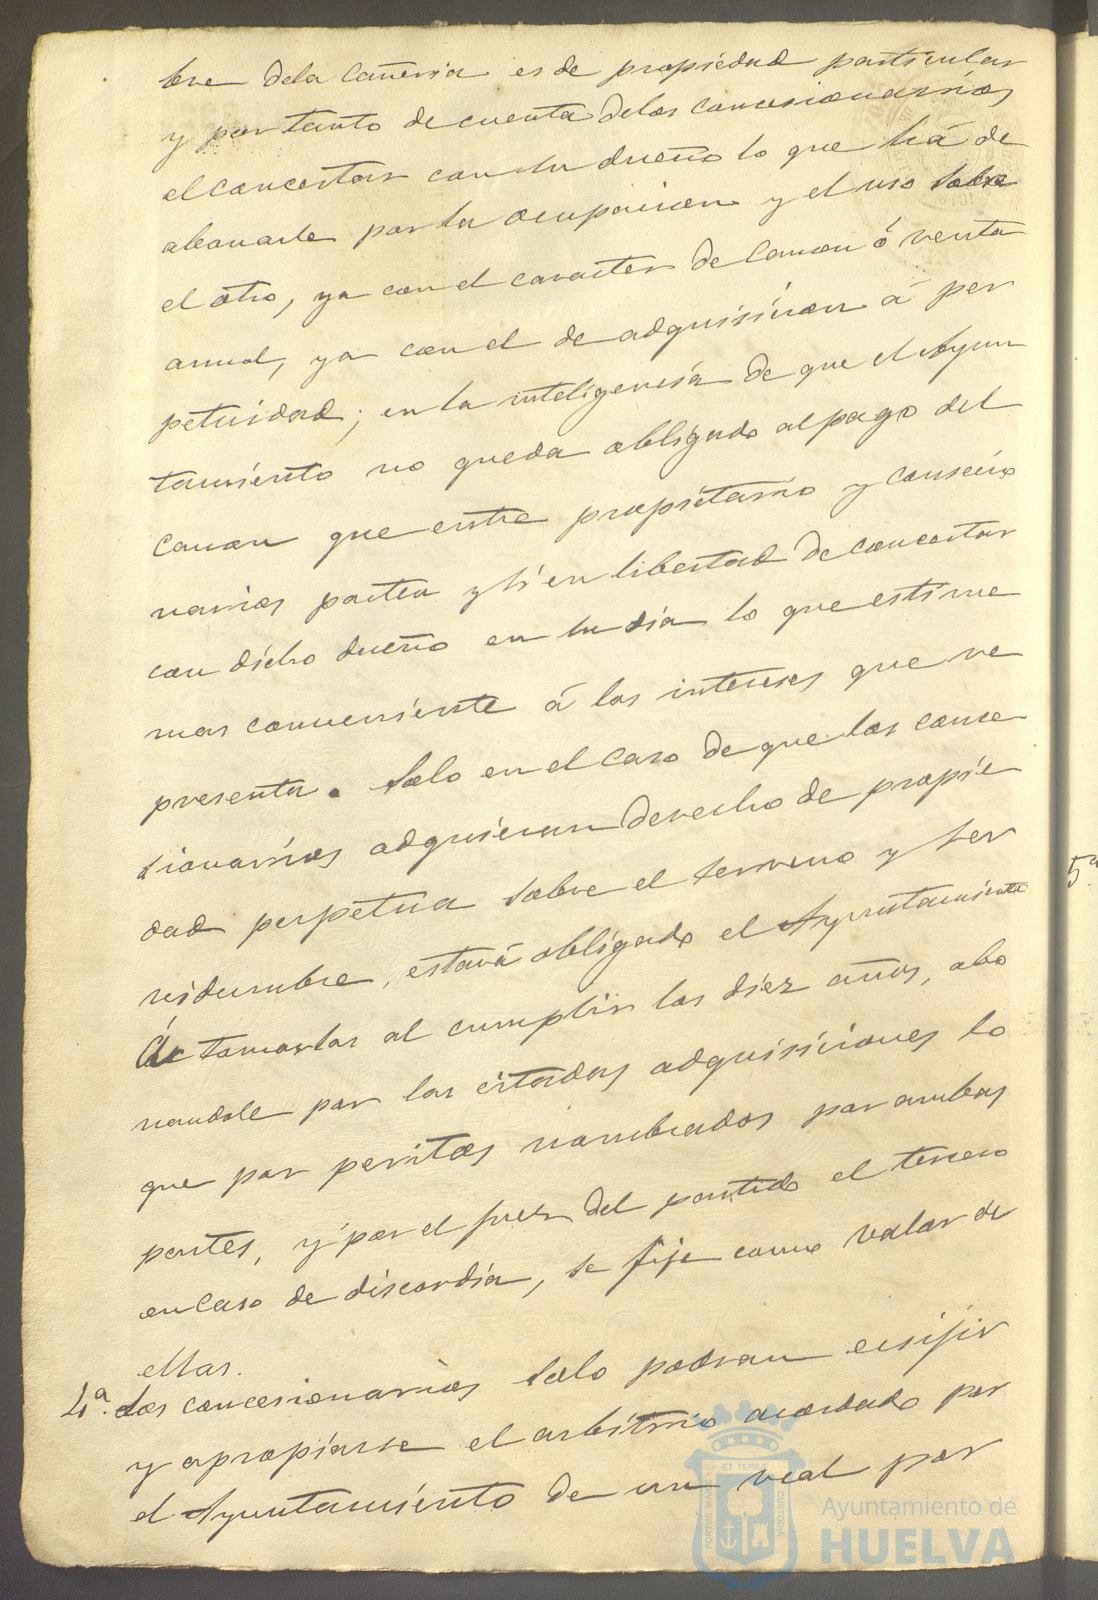 bre dela Cañeria es de propiedad particular
y por tanto de cuenta delos concesionarios
el concertar con su dueño lo que há de
abonarle por la ocupacion y el uso sobre
el otro, ya con el caracter de Canon ó renta
anual, ya con el de adquisicion á per
petuidad; en la inteligencia de que el Ayun
tamiento no queda obligado al pago del
Canon que entre propietario y concecio
narios pacten y si en libertad de concertar
con dicho dueño en su dia lo que estime
mas conveniente á los intereses que re
presenta. Solo en el caso de que los conce
sionarios adquieran derecho de propie
dad perpetua sobre el terreno y ser
vidumbre, estará obligado el Ayuntamiento
de tomarlas al cumplir los diez años, abo
nandole por las citadas adquisiciones lo
que por peritos nombrados por ambas
partes, y por el Juez del partido el tercero
en Caso de discordia, se fije como valor de
ellas.
4ª. Los concesionarios solo podran ecsijir
y apropiarse el arbitrio acordado por
el Ayuntamiento de un real por
5ª
PORTUS MARIS
ET TERRÆ
CUSTODIA
Ayuntamiento de
HUELVA